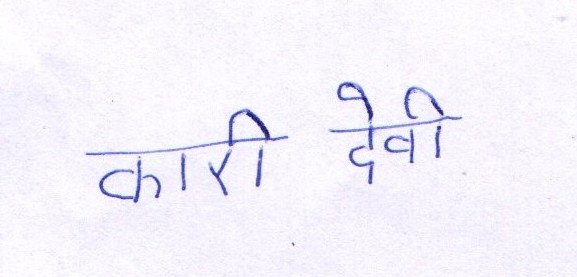 कारी देवी